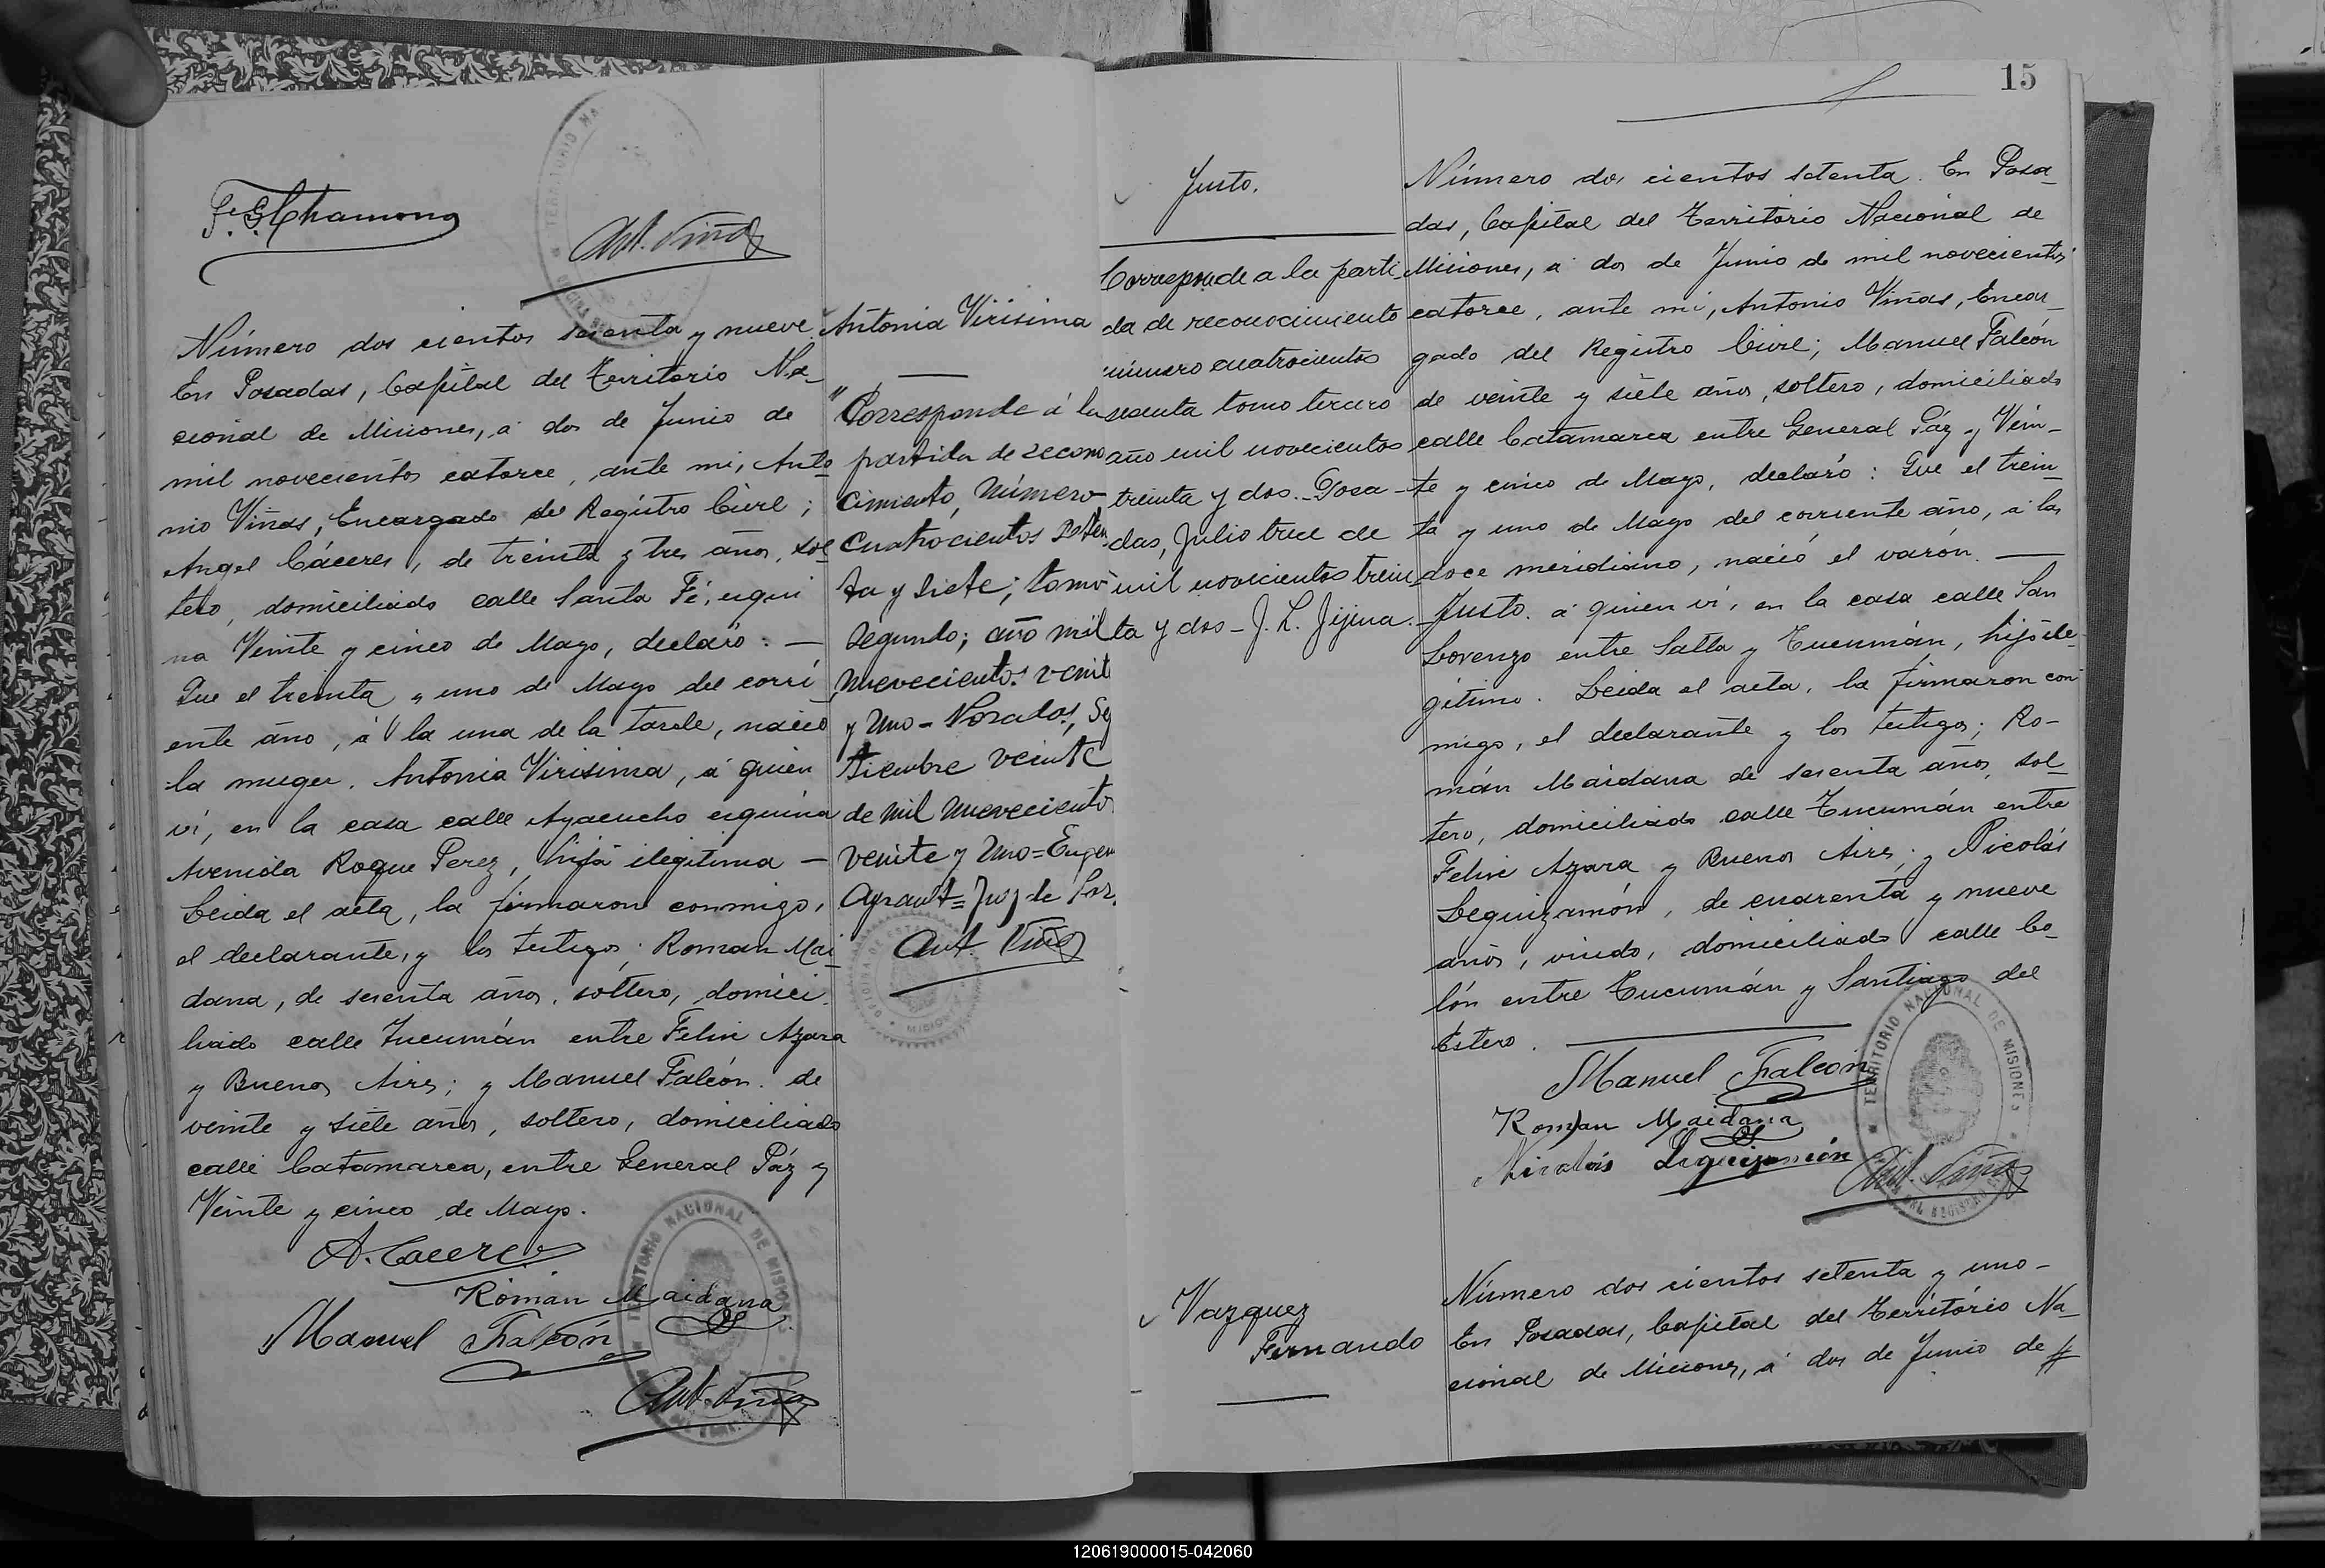 F. G. Chamorro
Ant. Viñas
Número dos cientos sesenta y nueve.
En Posadas, Capital del Territorio Na-
cional de Misiones, á dos de Junio de
mil novecientos catorce, ante mi, Anto-
nio Viñas, Encargado del Registro Civil;
Angel Cáceres, de treinta y tres años, sol-
tero, domiciliado calle Santa Fé, esqui
na Veinte y cinco de Mayo, declaró: —
Que el treinta y uno de Mayo del corri
ente año, á la una de la tarde, nació
la muger. Antonia Virisima, á quien
ví, en la casa calle Ayacucho esquina
Avenida Roque Perez, hija ilegitima —
Leida el acta, la firmaron conmigo,
el declarante, y los testigos; Roman Mai-
dana, de sesenta años, soltero, domici
liado calle Tucumán entre Felix Azara
y Buenos Aires; y Manuel Falcón. de
veinte y siete años, soltero, domiciliado
calle Catamarca, entre General Páz y
Veinte y cinco de Mayo.
A. Caceres
Román Maidana
Manuel Falcón
TERRITORIO NACIONAL DE MISIONES
Ant. Viñas
Antonia Virisima
"Corresponde á la
partida de recono
cimiento, Número
cuatrocientos seten
ta y siete; tomo
segundo; año mil
nuevecientos veint
y uno = Posadas, Se
tiembre veinte
de mil nuevecientos
veinte y uno = Eugen
Ayrault = Juez de Paz.
Ant. Viñas
15
Justo.
Corresponde a la parti-
da de reconocimiento
número cuatrocientos
sesenta tomo tercero
año mil novecientos
treinta y dos.- Posa-
das, Julio trece de
mil novecientos trein
ta y dos - J. L.
Número dos cientos setenta. En Posa-
das, Capital del Territorio Nacional de
Misiones, á dos de Junio de mil novecientos
catorce, ante mi, Antonio Viñas, Encar-
gado del Registro Civil; Manuel Falcón
de veinte y siete años, soltero, domiciliado
calle Catamarca entre General Páz y Vein-
te y cinco de Mayo, declaró: Que el trein-
ta y uno de Mayo del corriente año, á las
doce meridiano, nació el varón. —
Justo. á quien ví, en la casa calle San
Lorenzo entre Salta y Tucumán, hijo ile-
gítimo. Leida el acta, la firmaron con
migo, el declarante y los testigos; Ro-
mán Maidana de sesenta años, sol-
tero, domiciliado calle Tucumán entre
Felix Azara y Buenos Aires; y Nicolás
Leguizamón, de cuarenta y nueve
años, viudo, domiciliado calle Co-
lón entre Tucumán y Santiago del
Estero.
Manuel Falcón
Roman Maidana
Nicolás Leguizamón
TERRITORIO NACIONAL DE MISIONES
Ant. Viñas
Vazquez
Fernando
Número dos cientos setenta y uno-
En Posadas, Capital del Território Na-
cional de Misiones, á dos de Junio de
120619000015-042060